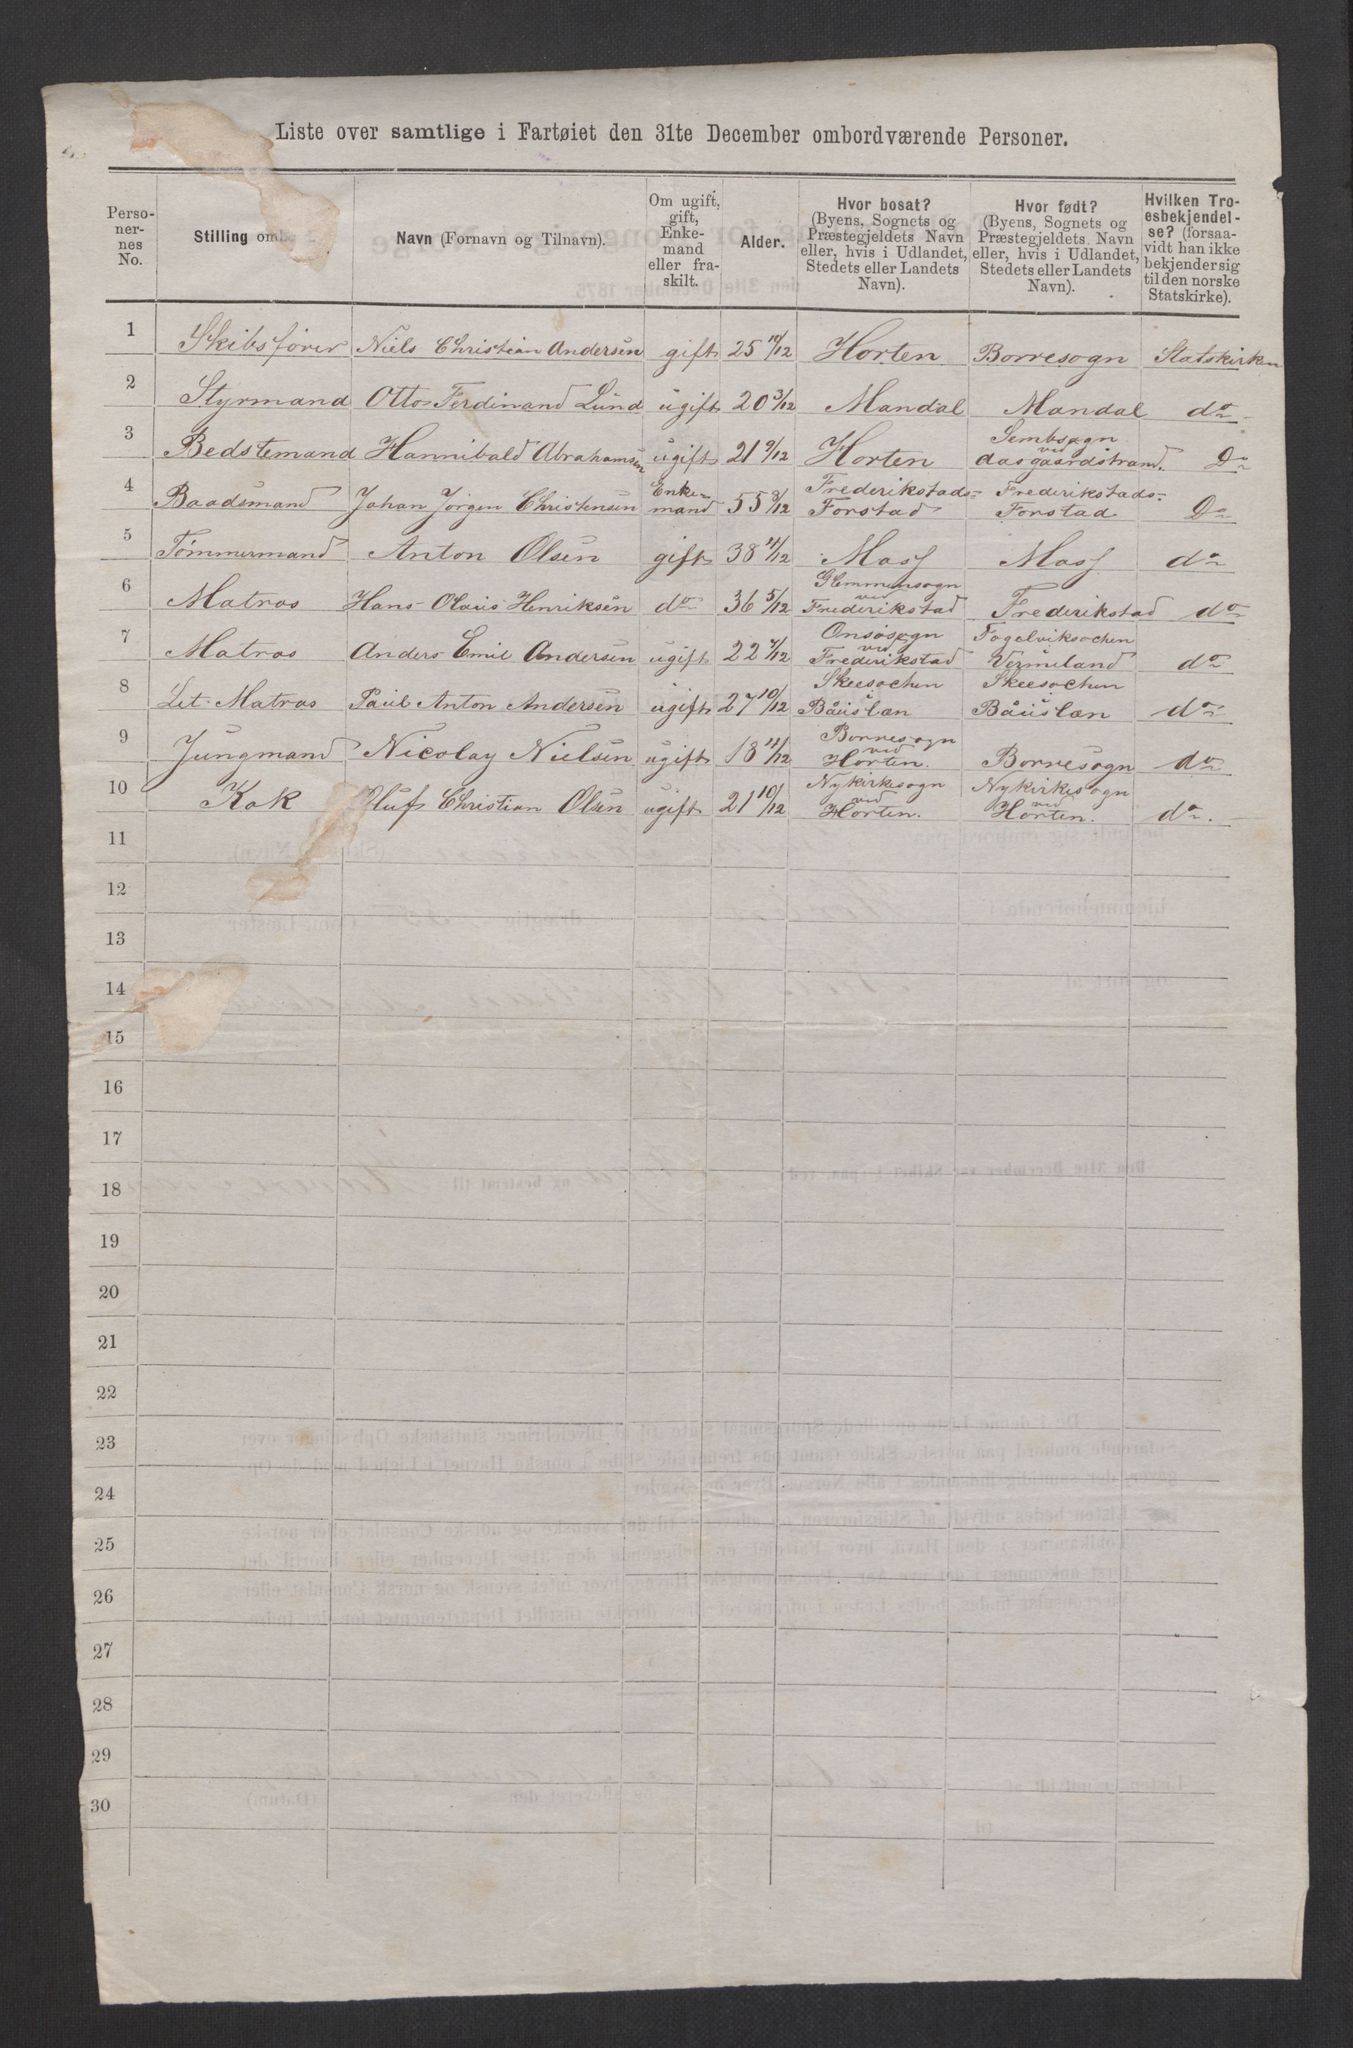 Liste over samtlige i Fartøiet den 31te December ombordværende Personer.
Perso-
ner-
nes
No.
Stilling ombo
Navn (Fornavn og Tilnavn).
Om ugift,
gift,
Enke-
mand
eller fra-
skilt.
Alder.
Hvor bosat?
(Byens, Sognets og
Præstegjeldets Navn
eller, hvis i Udlandet,
Stedets eller Landets
Navn).
Hvor født?
(Byens, Sognets og
Præstegjeldets Navn
eller, hvis i Udlandet,
Stedets eller Landets
Navn).
Hvilken Tro-
esbekjendel-
se? (forsaa-
vidt han ikke
bekjender sig
til den norske
Statskirke).
1 Skibsfører Niels Christian Andersen gift 25 Horten Borresogn Statskirken
2 Styrmand Otto Ferdinand Lund ugift 20 3/12 Mandal Mandal do
3 Bedstemand Hannibald Abrahamsen ugift 21 9/12 Horten Sembsogn ved Aasgaardstrand. Do
4 Baadsmand Johan Jørgen Christensen Enke-mand 55 8/12 Frederikstads-Forstad Frederikstads-Forstad Do
5 Tømmermand Anton Olsen gift 38 11/12 Moss Moss do
6 Matros Hans Olaus Henriksen do 36 5/12 Glemmensogn ved Frederikstad Frederikstad do
7 Matros Anders Emil Andersen ugift 22 7/12 Onsøsogn ved Frederikstad Fogelviksochen Vermeland do
8 Let Matros Paul Anton Andersen ugift 27 10/12 Skeesochen i Båuslæn Skeesochen i Båuslæn do
9 Jungmand Nicolay Nielsen ugift 18 11/12 Borresogn ved Horten. Borresogn do
10 Kok Oluf Christian Olsen ugift 21 10/12 Nykirkesogn ved Horten. Nykirkesogn ved Horten. do.
11
12
13
14
15
16
17
18
19
20
21
22
23
24
25
26
27
28
29
30